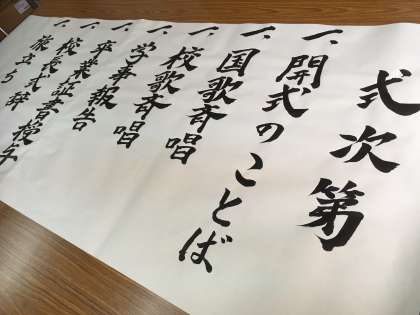 式次第
一、開式のことば
一、国歌斉唱
一、校歌斉唱
一、学事報告
一、卒業証書授与
一、校長式辞
一、旅立ち